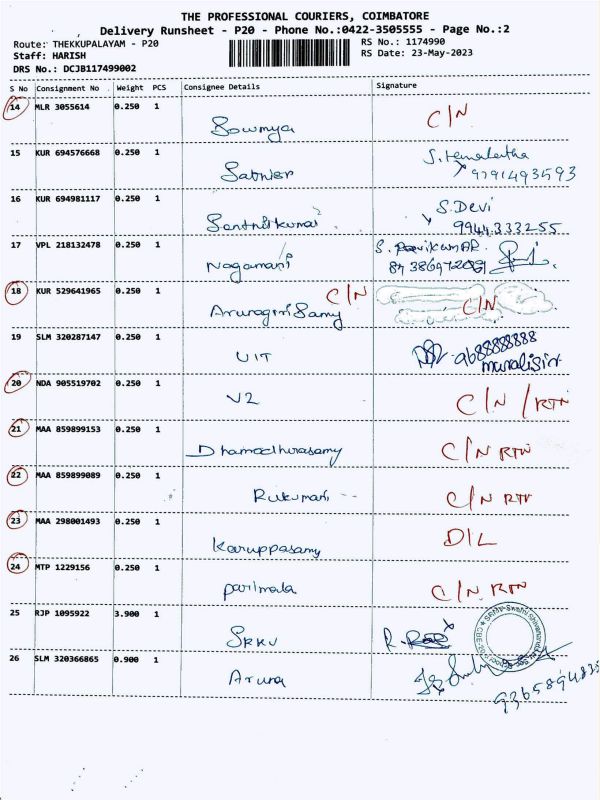 THE PROFESSIONAL COURIERS, COIMBATORE
Delivery Runsheet - P20 - Phone No.:0422-3505555 - Page No.:2
Route: THEKKUPALAYAM - P20
RS No.: 1174990
Staff: HARISH
RS Date: 23-May-2023
DRS No.: DCJB117499002
S No Consignment No Weight PCS Consignee Details Signature
14 MLR 3055614 0.250 1 Sowmya C/N
15 KUR 694576668 0.250 1 S. Hemalatha
9791493593
16 KUR 694981117 0.250 1 Senthilkumar S. Devi
9944333255
17 VPL 218132478 0.250 1 Nagamani S. RavikumAR.
18 KUR 529641965 0.250 1 Arunagirisamy C/N C/N
19 SLM 320287147 0.250 1 UIT
20 NDA 905519702 0.250 1 V2 C/N / RTN
21 MAA 859899153 0.250 1 Dhamodhirasamy C/N RTN
22 MAA 859899089 0.250 1 Rukumani C/N RTN
23 MAA 298001493 0.250 1 Karuppasamy D/L
24 MTP 1229156 0.250 1 parimala C/N RTN
25 RJP 1095922 3.900 1 SKKV
26 SLM 320366865 0.900 1 Aruna